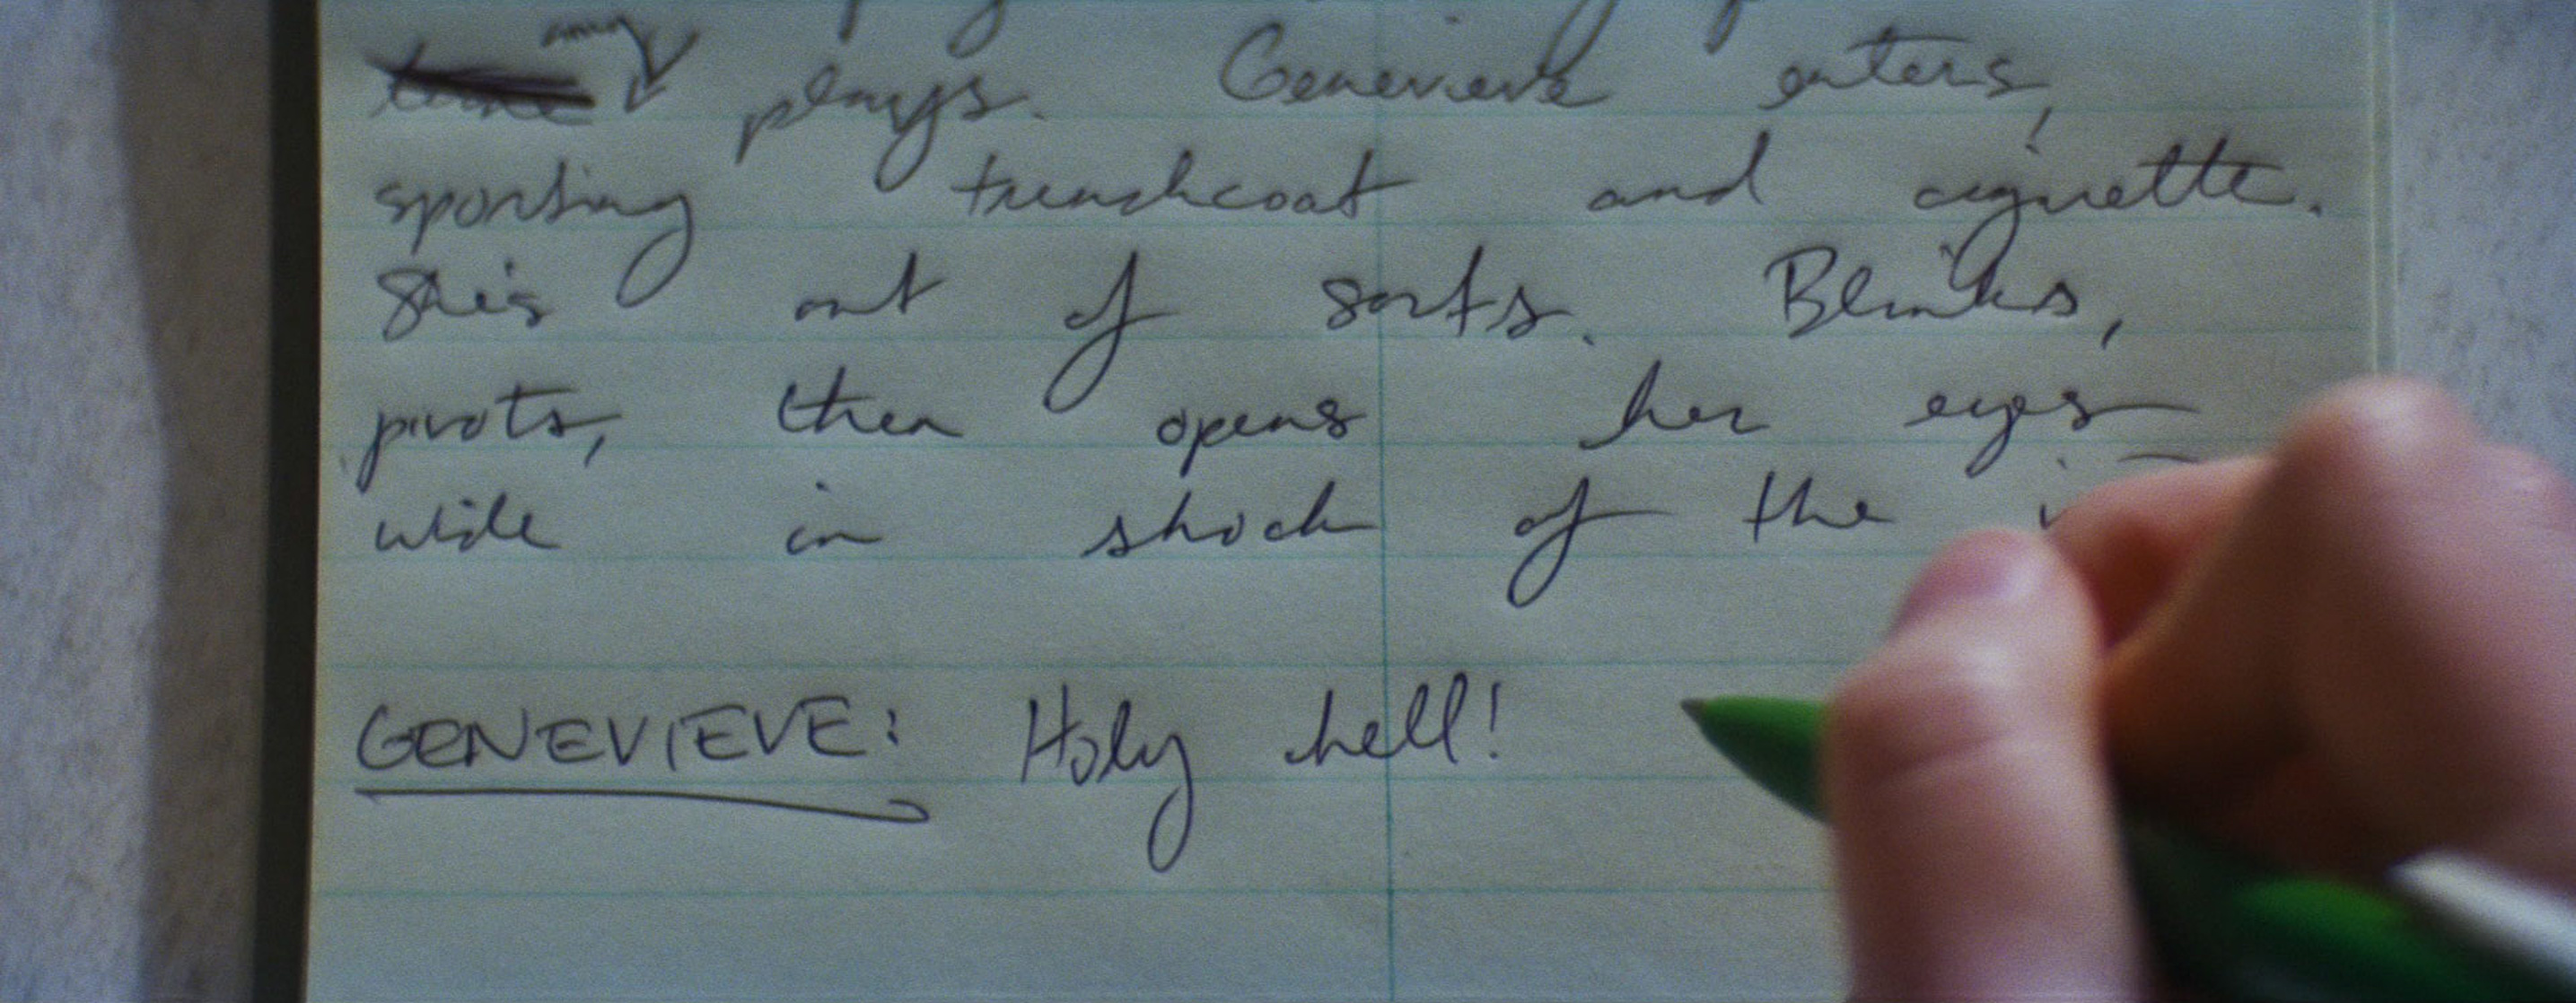 plays. Genevieve enters,
sporting trenchcoat and cigarette.
She's out of sorts. Blinks,
pivots, then opens her eyes
wide in shock of the
GENEVIEVE: Holy hell!